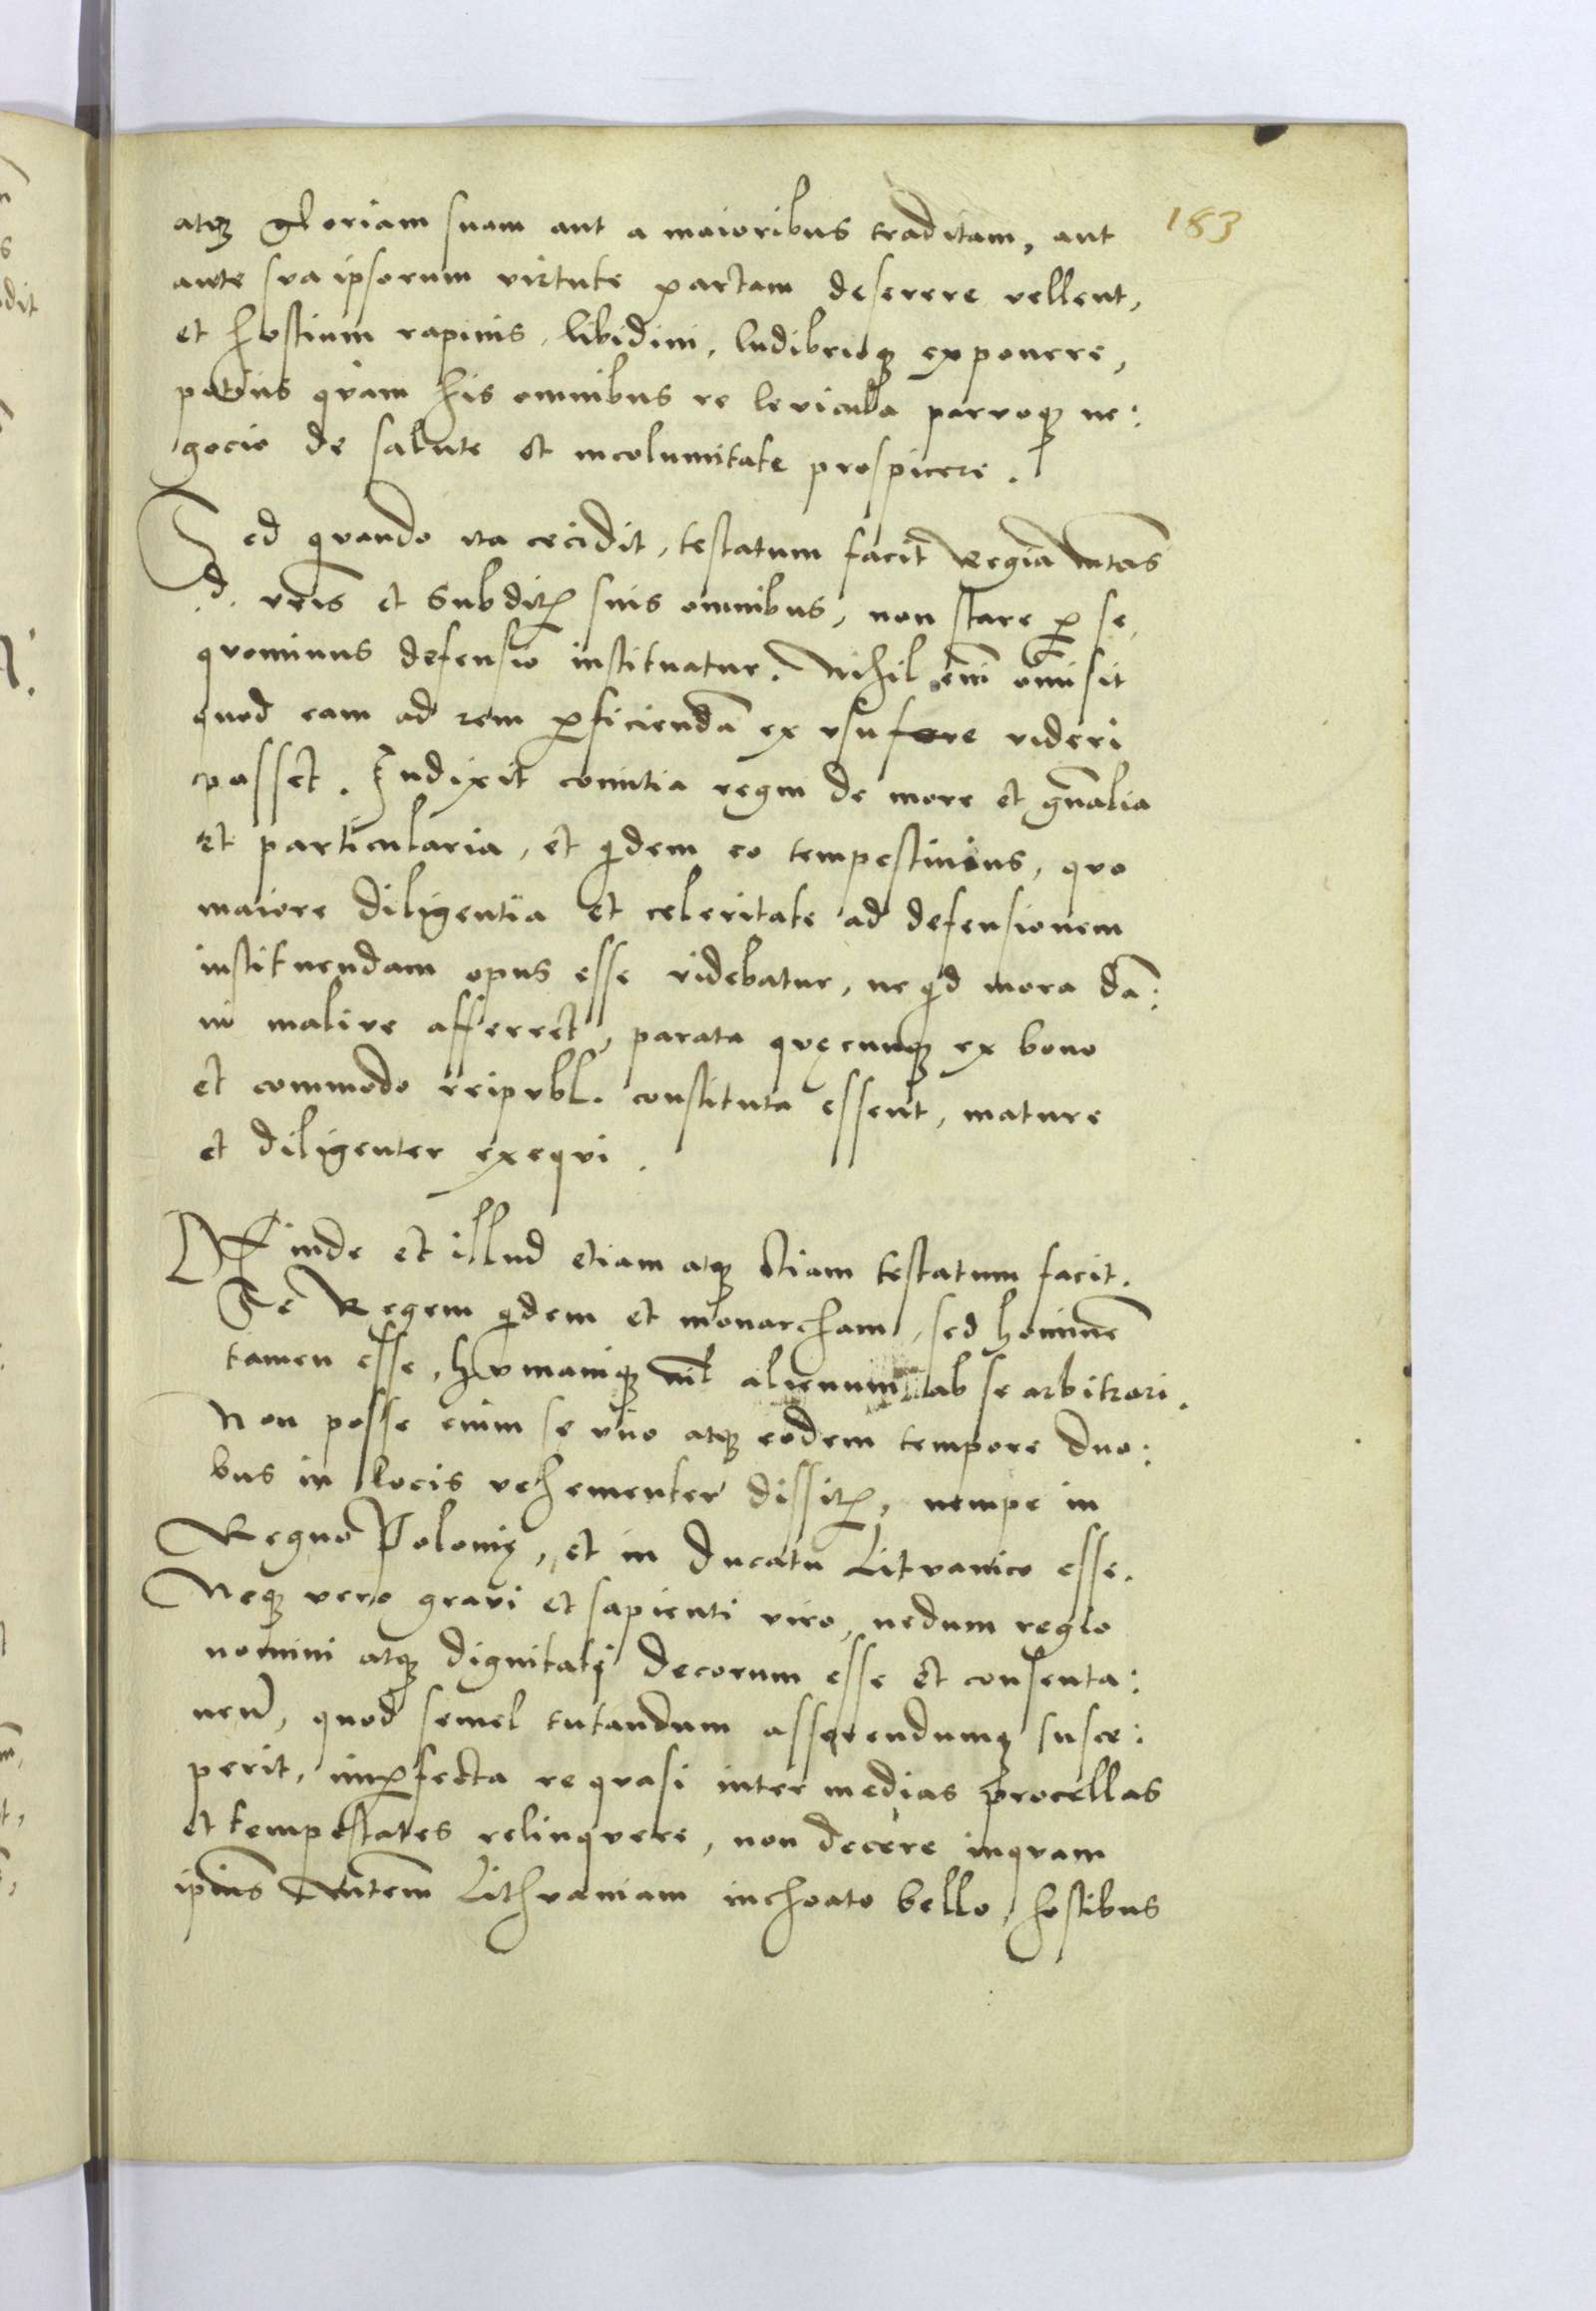 183
atqꝫ gloriam suam aut a maioribus traditam, aut
ante sua ipsorum virtute partam deserere vellent,
et hostium rapinis, libidini, ludibrioqꝫ exponere,
potius quam his omnibus re levicula parvoqꝫ ne:
gocio de salute et incolumitate prospicere.
Sed quando ita cecidit, testatum facit Regia Mtas
.d. vris et subditꝭ suis omnibus, non stare ꝑ se,
quominus defensio instituatur. Nihil em̄ omisit
quod eam ad rem ꝑficiendā ex usu fore videri
posset. Indixit comitia regni de more et gn̄alia
et particularia, et qͥdem eo tempestivius, quo
maiore diligentia et celeritate ad defensionem
instituendam opus esse videbatur, ne qͥd mora dā:
ni maliue afferret, parata quęcunqꝫ ex bono
et commodo reipubl. constituta essent, mature
et diligenter exequi.
Deinde et illud etiam atqꝫ etiam testatum facit.
Se Regem qͥdem et monarcham, sed hominē
tamen esse, humaniqꝫ nil alienum ab se arbitrari.
Non posse enim se uno atqꝫ eodem tempore duo:
bus in locis vehementer dissitꝭ, nempe in
Regno Polonię, et in Ducatu Lituanico esse.
Neqꝫ vero gravi et sapienti viro, nedum regio
nomini atqꝫ dignitati decorum esse et consenta:
neū, quod semel tutandum asserendumqꝫ susce:
perit, imꝑfecta re quasi inter medias procellas
et tempestates relinquere, non decere inquam
ipsius Mtem Lithuaniam inchoato bello, hostibus